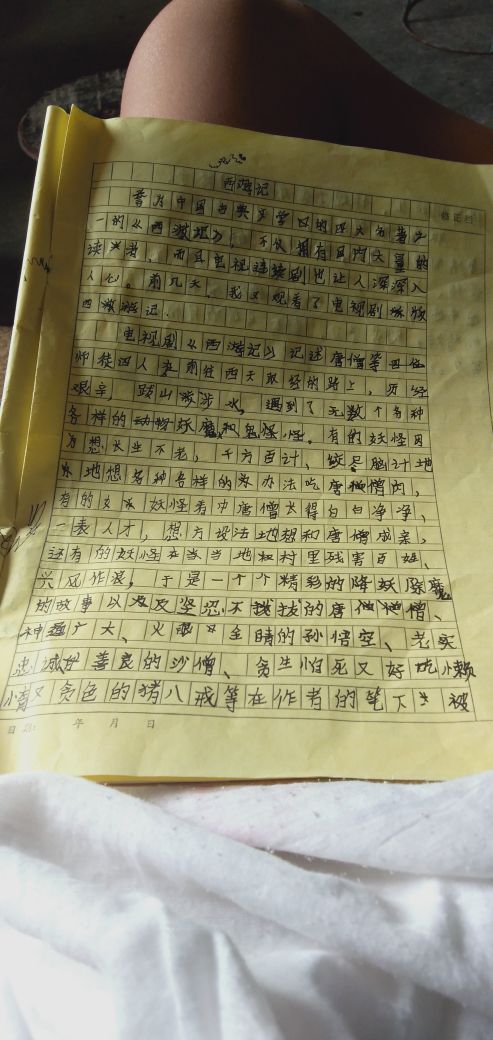 西游记
修正栏
普为中国古典文学的四大名著之
一的《西游记》，不仅拥有国内大量的
读者，而且电视连续剧也让人深深入
人心。前几天，我又观看了电视剧版
西游记.
电视剧《西游记》记述唐僧等四位
师徒四人在前往西天取经的路上，历经
艰辛，跋山涉水，遇到了无数个各种
各样的动物妖魔和鬼怪。有的妖怪因
为想长生不老，千方百计、绞尽脑汁地
地想各种各样的办法吃唐僧肉，
有的女妖怪看中唐僧长得白白净净、
一表人才，想方设法地想和唐僧成亲，
还有的妖怪在当地和村里残害百姓、
兴风作浪，于是一个个精彩的降妖除魔
的故事以及坚忍不拔的唐僧、
神通广大、火眼金睛的孙悟空、老实
忠诚善良的沙僧、贪生怕死又好吃懒
又贪色的猪八戒等在作者的笔下被
日期： 年 月 日